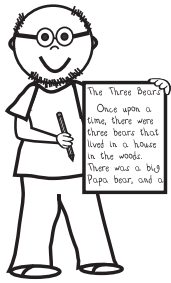 The Three Bears
Once upon a
time, there were
three bears that
lived in a house
in the woods.
There was a big
Papa bear, and a